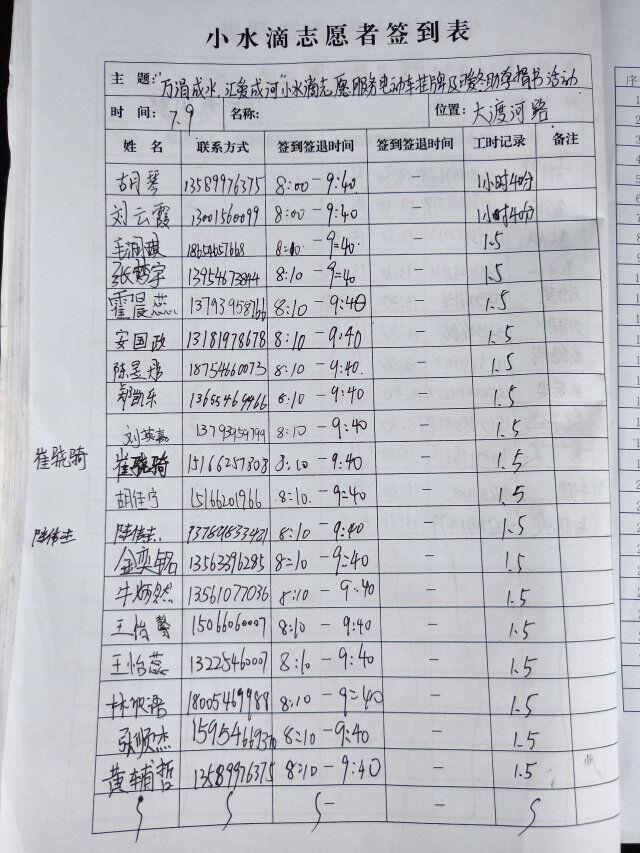 小水滴志愿者签到表
主 题: "万涓成水、汇爱成河"小水滴志愿服务电动车挂牌及冬助学捐书活动
时 间: 7.9 名称: 位置: 大渡河路
姓 名 联系方式 签到签退时间 签到签退时间 工时记录 备注
胡琴 13589976375 8:00-9:40 1小时40分
刘云霞 13001560099 8:00-9:40 - 1小时40分
毛润琪 8:10-9:40 - 1.5
张梦宇 13954673844 8:10-9:40 - 1.5
霍晨蕊 13793958766 8:10-9:40 - 1.5
安国政 13181978678 8:10-9:40 - 1.5
陈昱瑶 18754660073 8:10-9:40 - 1.5
郝凯乐 13655464466 8:10-9:40 - 1.5
刘英嘉 13793959799 8:10-9:40 - 1.5
崔骁骑 崔骁骑 15166257808 8:10-9:40 - 1.5
胡佳宁 15166201966 8:10-9:40 - 1.5
陆伟杰 陆伟杰 8:10-9:40 - 1.5
金奕铭 13563396285 8:10-9:40 - 1.5
牛炳然 13561077036 8:10-9:40 - 1.5
王怡馨 15066060007 8:10-9:40 - 1.5
王怡蕊 13225460007 8:10-9:40 - 1.5
林欣语 18005469988 8:10-9:40 - 1.5
张顺杰 8:10-9:40 - 1.5
黄辅哲 13589976375 8:10-9:40 - 1.5